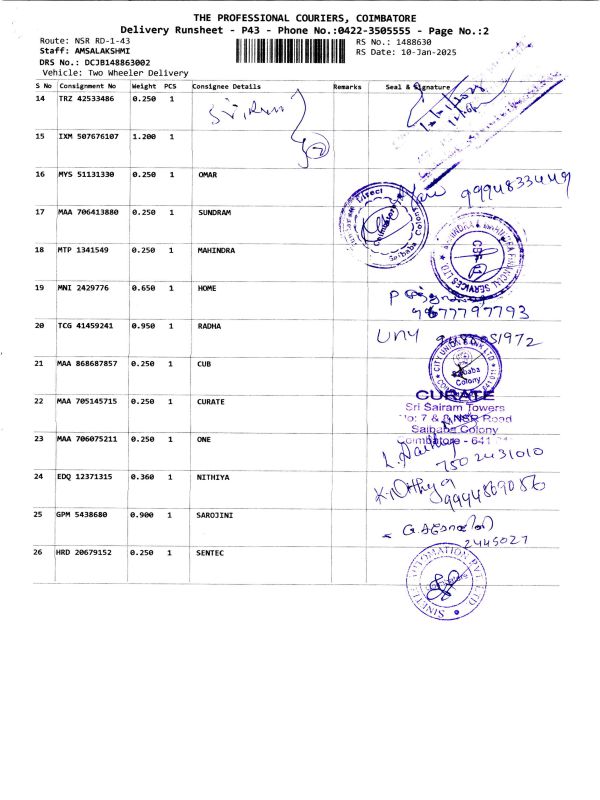 THE PROFESSIONAL COURIERS, COIMBATORE
Delivery Runsheet - P43 - Phone No.:0422-3505555 - Page No.:2
Route: NSR RD-1-43
RS No.: 1488630
Staff: AMSALAKSHMI
RS Date: 10-Jan-2025
DRS No.: DCJB148863002
Vehicle: Two Wheeler Delivery
S No Consignment No Weight PCS Consignee Details Remarks Seal & Signature
14 TRZ 42533486 0.250 1
15 IXM 507676107 1.200 1
16 MYS 51131330 0.250 1 OMAR
9994833449
17 MAA 706413880 0.250 1 SUNDRAM
18 MTP 1341549 0.250 1 MAHINDRA
19 MNI 2429776 0.650 1 HOME
9677797793
20 TCG 41459241 0.950 1 RADHA
21 MAA 868687857 0.250 1 CUB
CITY UNION BANK LTD
Saibaba
Colony
22 MAA 705145715 0.250 1 CURATE
CURATE
Sri Sairam Towers
No: 7 & 8 NSR Road
Saibaba Colony
Coimbatore - 641
23 MAA 706075211 0.250 1 ONE
750 2431010
24 EDQ 12371315 0.360 1 NITHIYA
K. Nithya
9944869086
25 GPM 5438680 0.900 1 SAROJINI
2445027
26 HRD 20679152 0.250 1 SENTEC